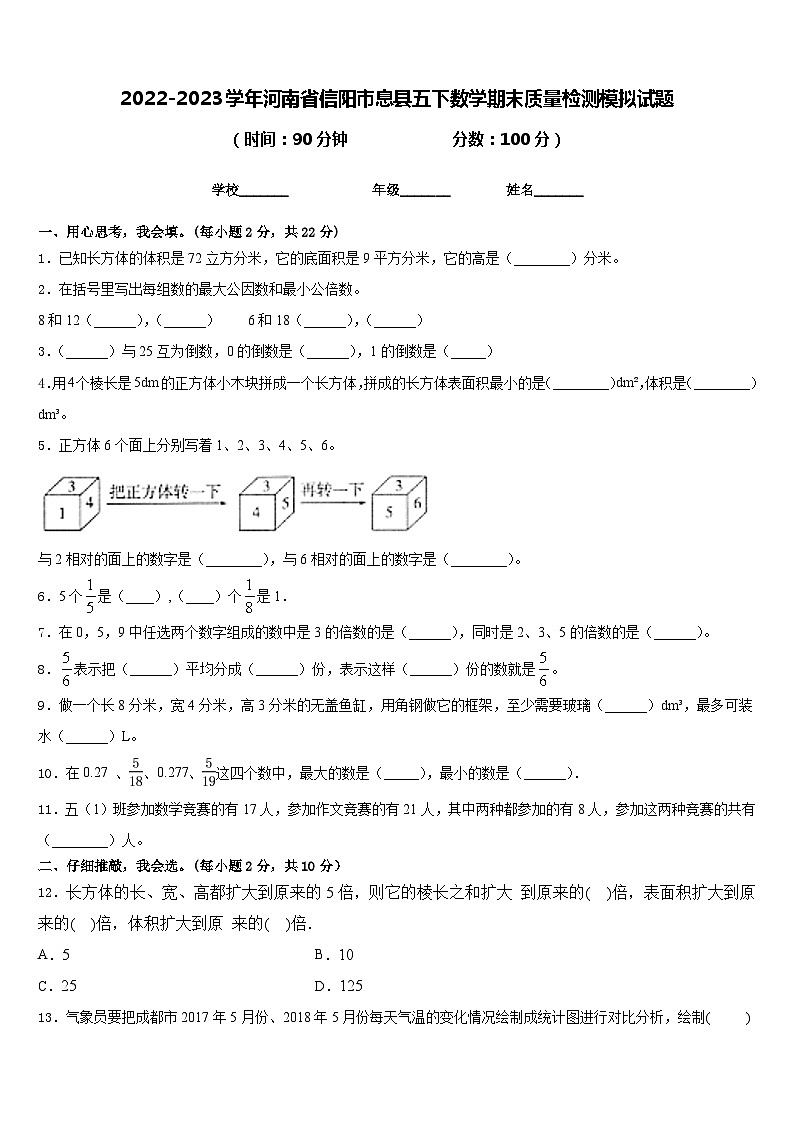 2022-2023学年河南省信阳市息县五下数学期末质量检测模拟试题
（时间：90分钟 分数：100分）
学校_______ 年级_______ 姓名_______
一、用心思考，我会填。(每小题2分，共22分)
1．已知长方体的体积是72立方分米，它的底面积是9平方分米，它的高是（________）分米。
2．在括号里写出每组数的最大公因数和最小公倍数。
8和12（______），（______） 6和18（______），（______）
3．（______）与25互为倒数，0的倒数是（______），1的倒数是（_____）
4．用4个棱长是5dm的正方体小木块拼成一个长方体，拼成的长方体表面积最小的是（________）dm²，体积是（________）
dm³。
5．正方体6个面上分别写着1、2、3、4、5、6。
3 4 1 把正方体转一下 3 5 4 再转一下 3 6 5
与2相对的面上的数字是（________），与6相对的面上的数字是（________）。
6．5个1/5是（____），（____）个1/8是1．
7．在0，5，9中任选两个数字组成的数中是3的倍数的是（______），同时是2、3、5的倍数的是（______）。
8．5/6表示把（______）平均分成（______）份，表示这样（______）份的数就是5/6。
9．做一个长8分米，宽4分米，高3分米的无盖鱼缸，用角钢做它的框架，至少需要玻璃（______）dm³，最多可装
水（______）L。
10．在0.27 、5/18、0.277、5/19这四个数中，最大的数是（_____），最小的数是（______）．
11．五（1）班参加数学竞赛的有17人，参加作文竞赛的有21人，其中两种都参加的有8人，参加这两种竞赛的共有
（________）人。
二、仔细推敲，我会选。(每小题2分，共10分）
12．长方体的长、宽、高都扩大到原来的5倍，则它的棱长之和扩大 到原来的( )倍，表面积扩大到原
来的( )倍，体积扩大到原 来的( )倍．
A．5 B．10
C．25 D．125
13．气象员要把成都市2017年5月份、2018年5月份每天气温的变化情况绘制成统计图进行对比分析，绘制( )